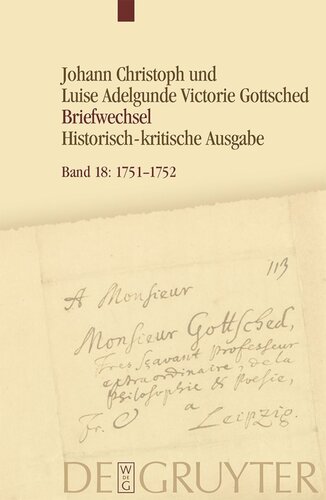 Johann Christoph und
Luise Adelgunde Victorie Gottsched
Briefwechsel
Historisch-kritische Ausgabe
Band 18: 1751–1752
113
A Monsieur
Monsieur Gottsched,
Tres sçavant Professeur
extraordinaire, de la
Philosophie & Poesie,
Fr. O a
Leipzig.
DE GRUYTER
W
DE
G